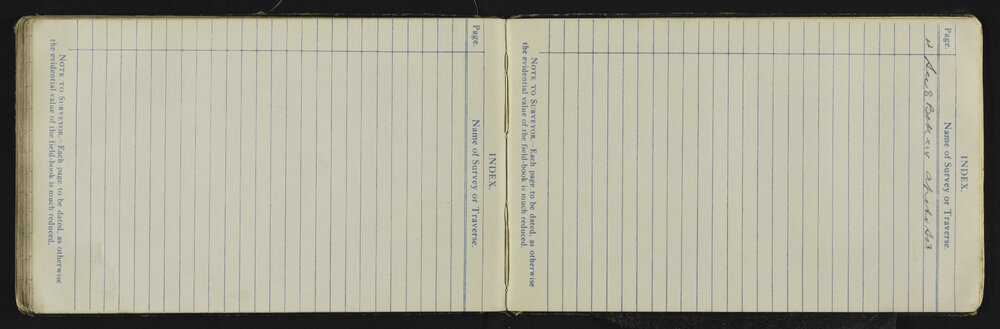 INDEX.
Page. Name of Survey or Traverse.
Sec 8 Blk XIV
NOTE TO SURVEYOR.—Each page to be dated, as otherwise
the evidential value of the field-book is much reduced.
INDEX.
Page. Name of Survey or Traverse.
NOTE TO SURVEYOR.—Each page to be dated, as otherwise
the evidential value of the field-book is much reduced.